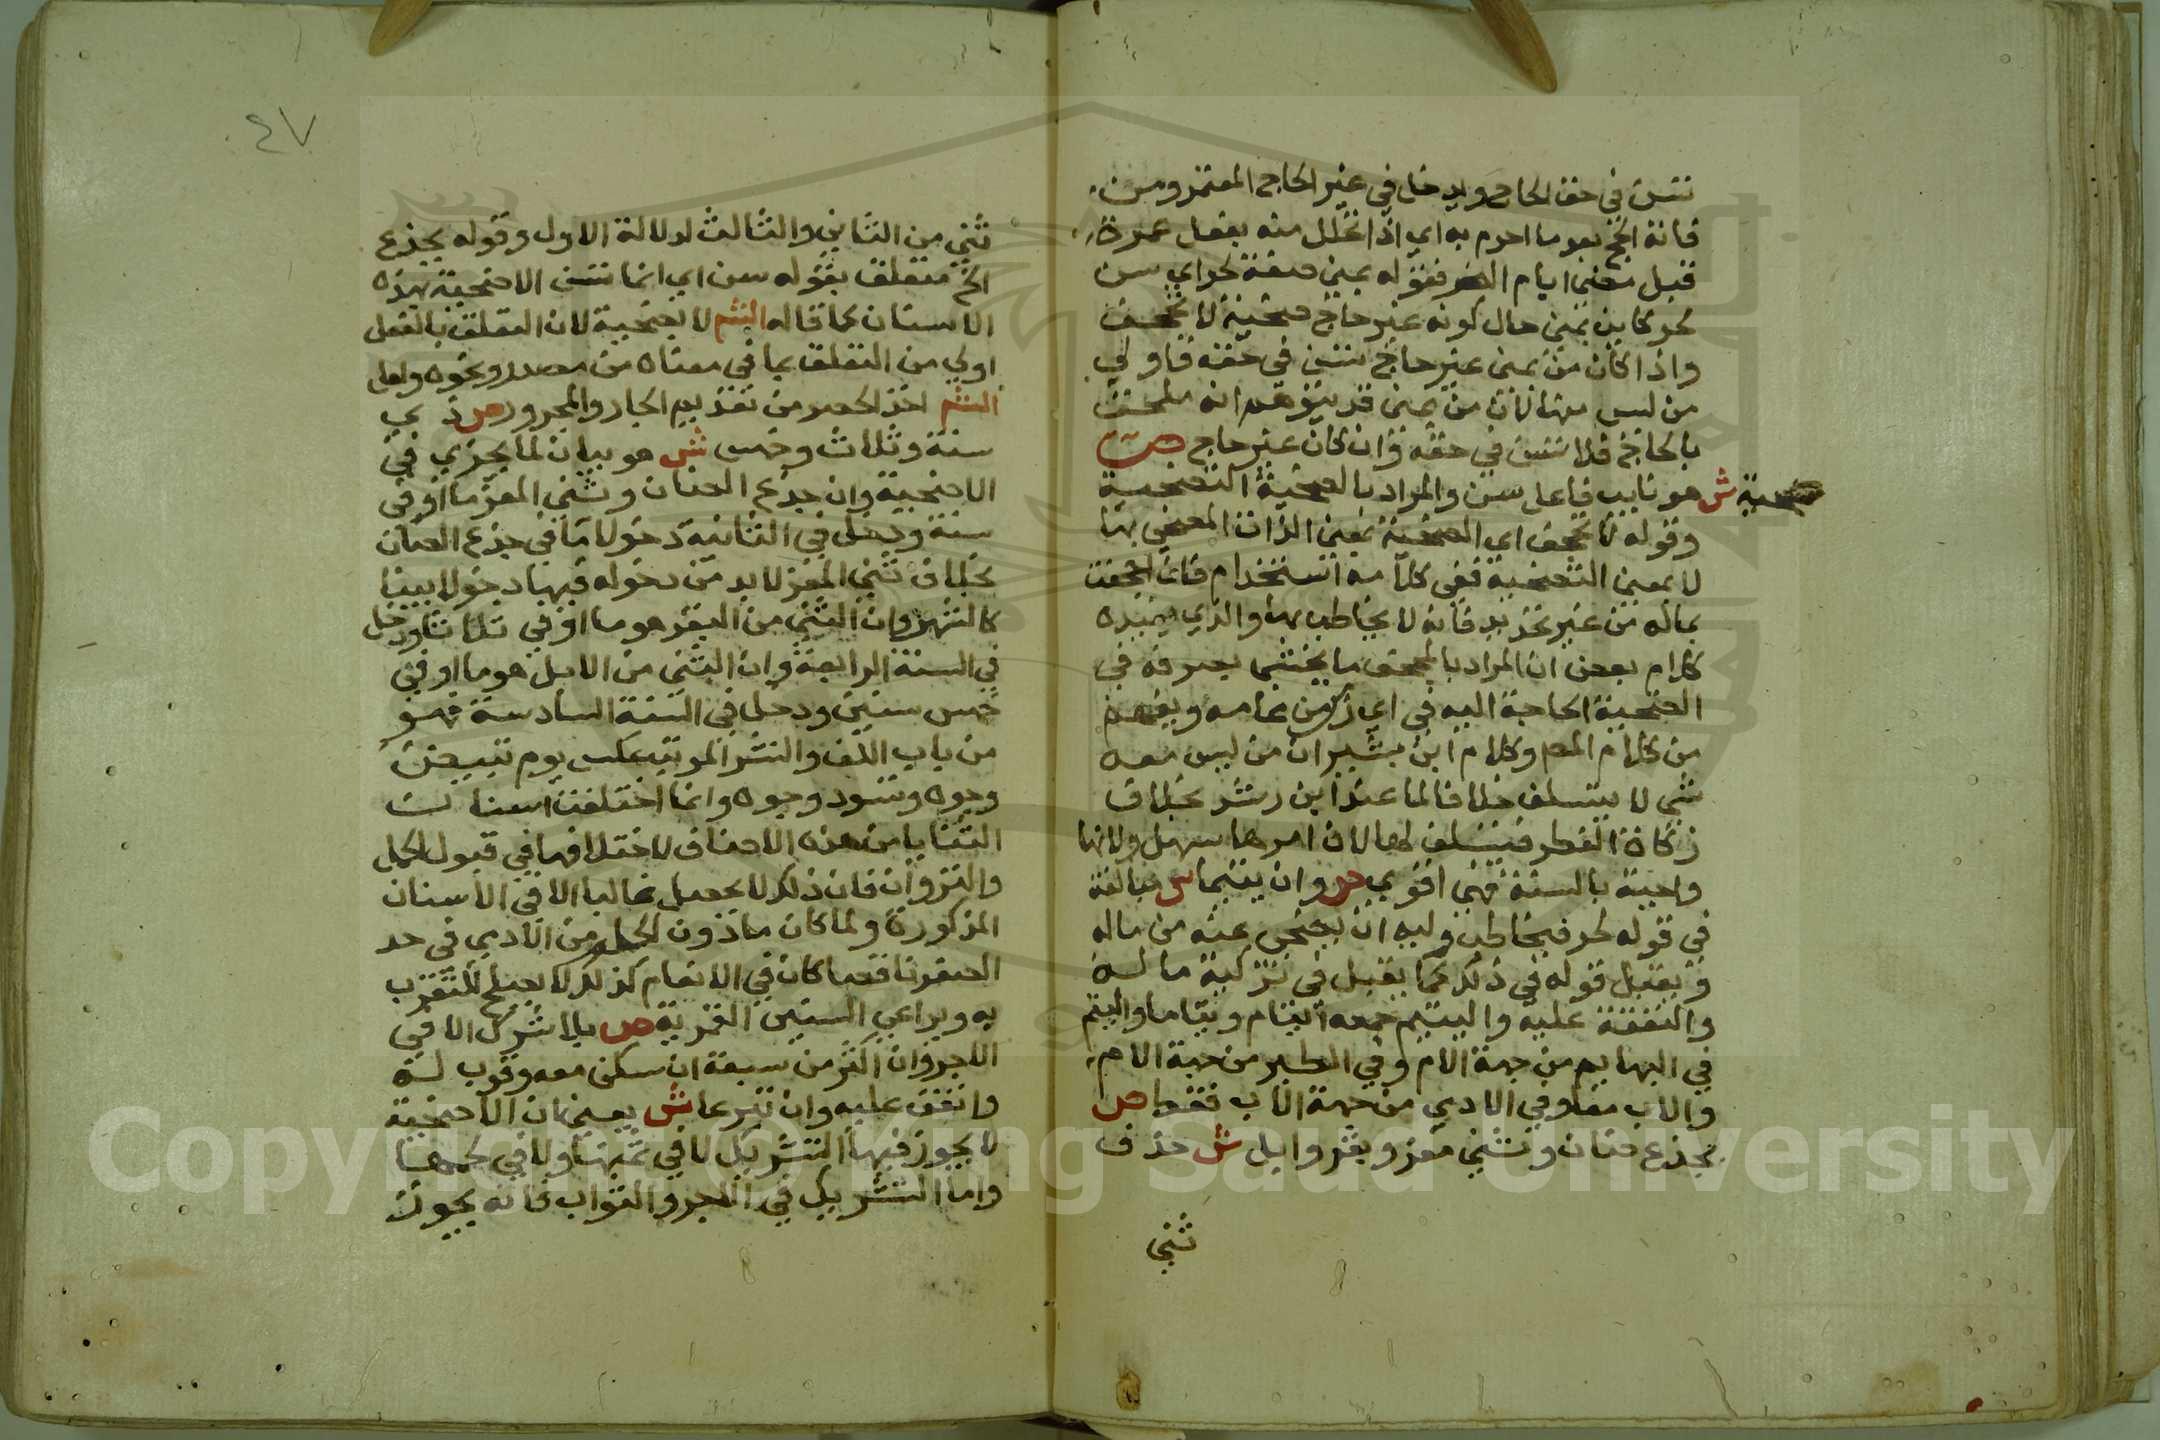 تسن في حق الحاج ويدخل في غير الحاج المعتمر ومن
فاته الحج بعد ما احرم به اي اذا تحلل منه بفعل عمرة
قبل مضي ايام النحر فقوله بمنى صفة لحر اي سن
لحر كاين بمنى حال كونه غير حاج ضحية لا تجحف
واذا كان من بمنى غير حاج تسن في حقه فاولى
من ليس بها لان من بمنى قد يتوهم انه ملحق
بالحاج فلا تسن في حقه وان كان غير حاج ص
ضحية ش هو نايب فاعل سن والمراد بالضحية التضحية
وقوله لا تجحف اي الضحية بمعنى الذات المضحى بها
لا بمعنى التضحية ففي كلامه استخدام فان اجحفت
بماله من غير تحديد فانه لا يخاطب بها والذي يفيده
كلام بعض ان المراد بالمجحف ما يخشى بصرفه في
الضحية الحاجة اليه في اي زمن من عامه ويفهم
من كلام المص وكلام ابن بشير ان من ليس معه
شي لا يتسلف خلافا لما عند ابن رشد بخلاف
زكاة الفطر فيتسلف لها لان امرها سهل ولانها
واجبة بالسنة فهي اقوى ص وان يتيما ش مبالغة
في قوله لحر فيخاطب وليه ان يضحي عنه من ماله
ويقبل قوله في ذلك كما يقبل في تزكية ماله
والنفقة عليه واليتيم جمعه ايتام ويتاما واليتم
في البهايم من جهة الام وفي الطير من جهة الام
والاب معا وفي الادمي من جهة الاب فقط ص
بجذع ضان وثني معز وبقر وابل ش حذف
ثني
٤٧
ثني من الثاني والثالث لدلالة الاول وقوله بجذع
الخ متعلق بقوله سن اي انما تسن الاضحية بهذه
الاسنان كما قاله الشم لا بضحية لان التعلق بالفعل
اولى من التعلق بما في معناه من مصدر ونحوه ولعل
الشم اخذ الحصر من تقديم الجار والمجرور ص ذي
سنة وثلاث وخمس ش هو بيان لما يجزي في
الاضحية وان جذع الضان وثني المعز ما اوفى
سنة ودخل في الثانية دخولا ما في جذع الضان
بخلاف ثني المعز لا بد من دخوله فيها دخولا بينا
كالشهر وان الثني من البقر هو ما اوفى ثلاثا ودخل
في السنة الرابعة وان الثني من الابل هو ما اوفى
خمس سنين ودخل في السنة السادسة فهو
من باب اللف والنشر المرتب عكس يوم تبيض
وجوه وتسود وجوه وانما اختلفت اسنان
الثنايا من هذه الاصناف لاختلافها في قبول الحمل
والنزوان فان ذلك لا يحصل غالبا الا في الاسنان
المذكورة ولما كان مادون الحمل من الادمي في حد
الصغر ناقصا كان في الانعام كذلك لا يصلح للتقرب
به ويراعي السنين القمرية ص بلا شرك الا في
الاجر وان اكثر من سبعة ان سكن معه وقرب له
وانفق عليه وان تبرعا ش يعني ان الاضحية
لا يجوز فيها التشريك لا في ثمنها ولا في لحمها
واما التشريك في الاجر والثواب فانه يجوز